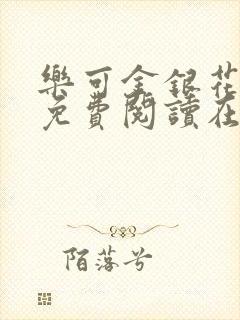 樂可金銀花
免費閱讀在
陌落兮